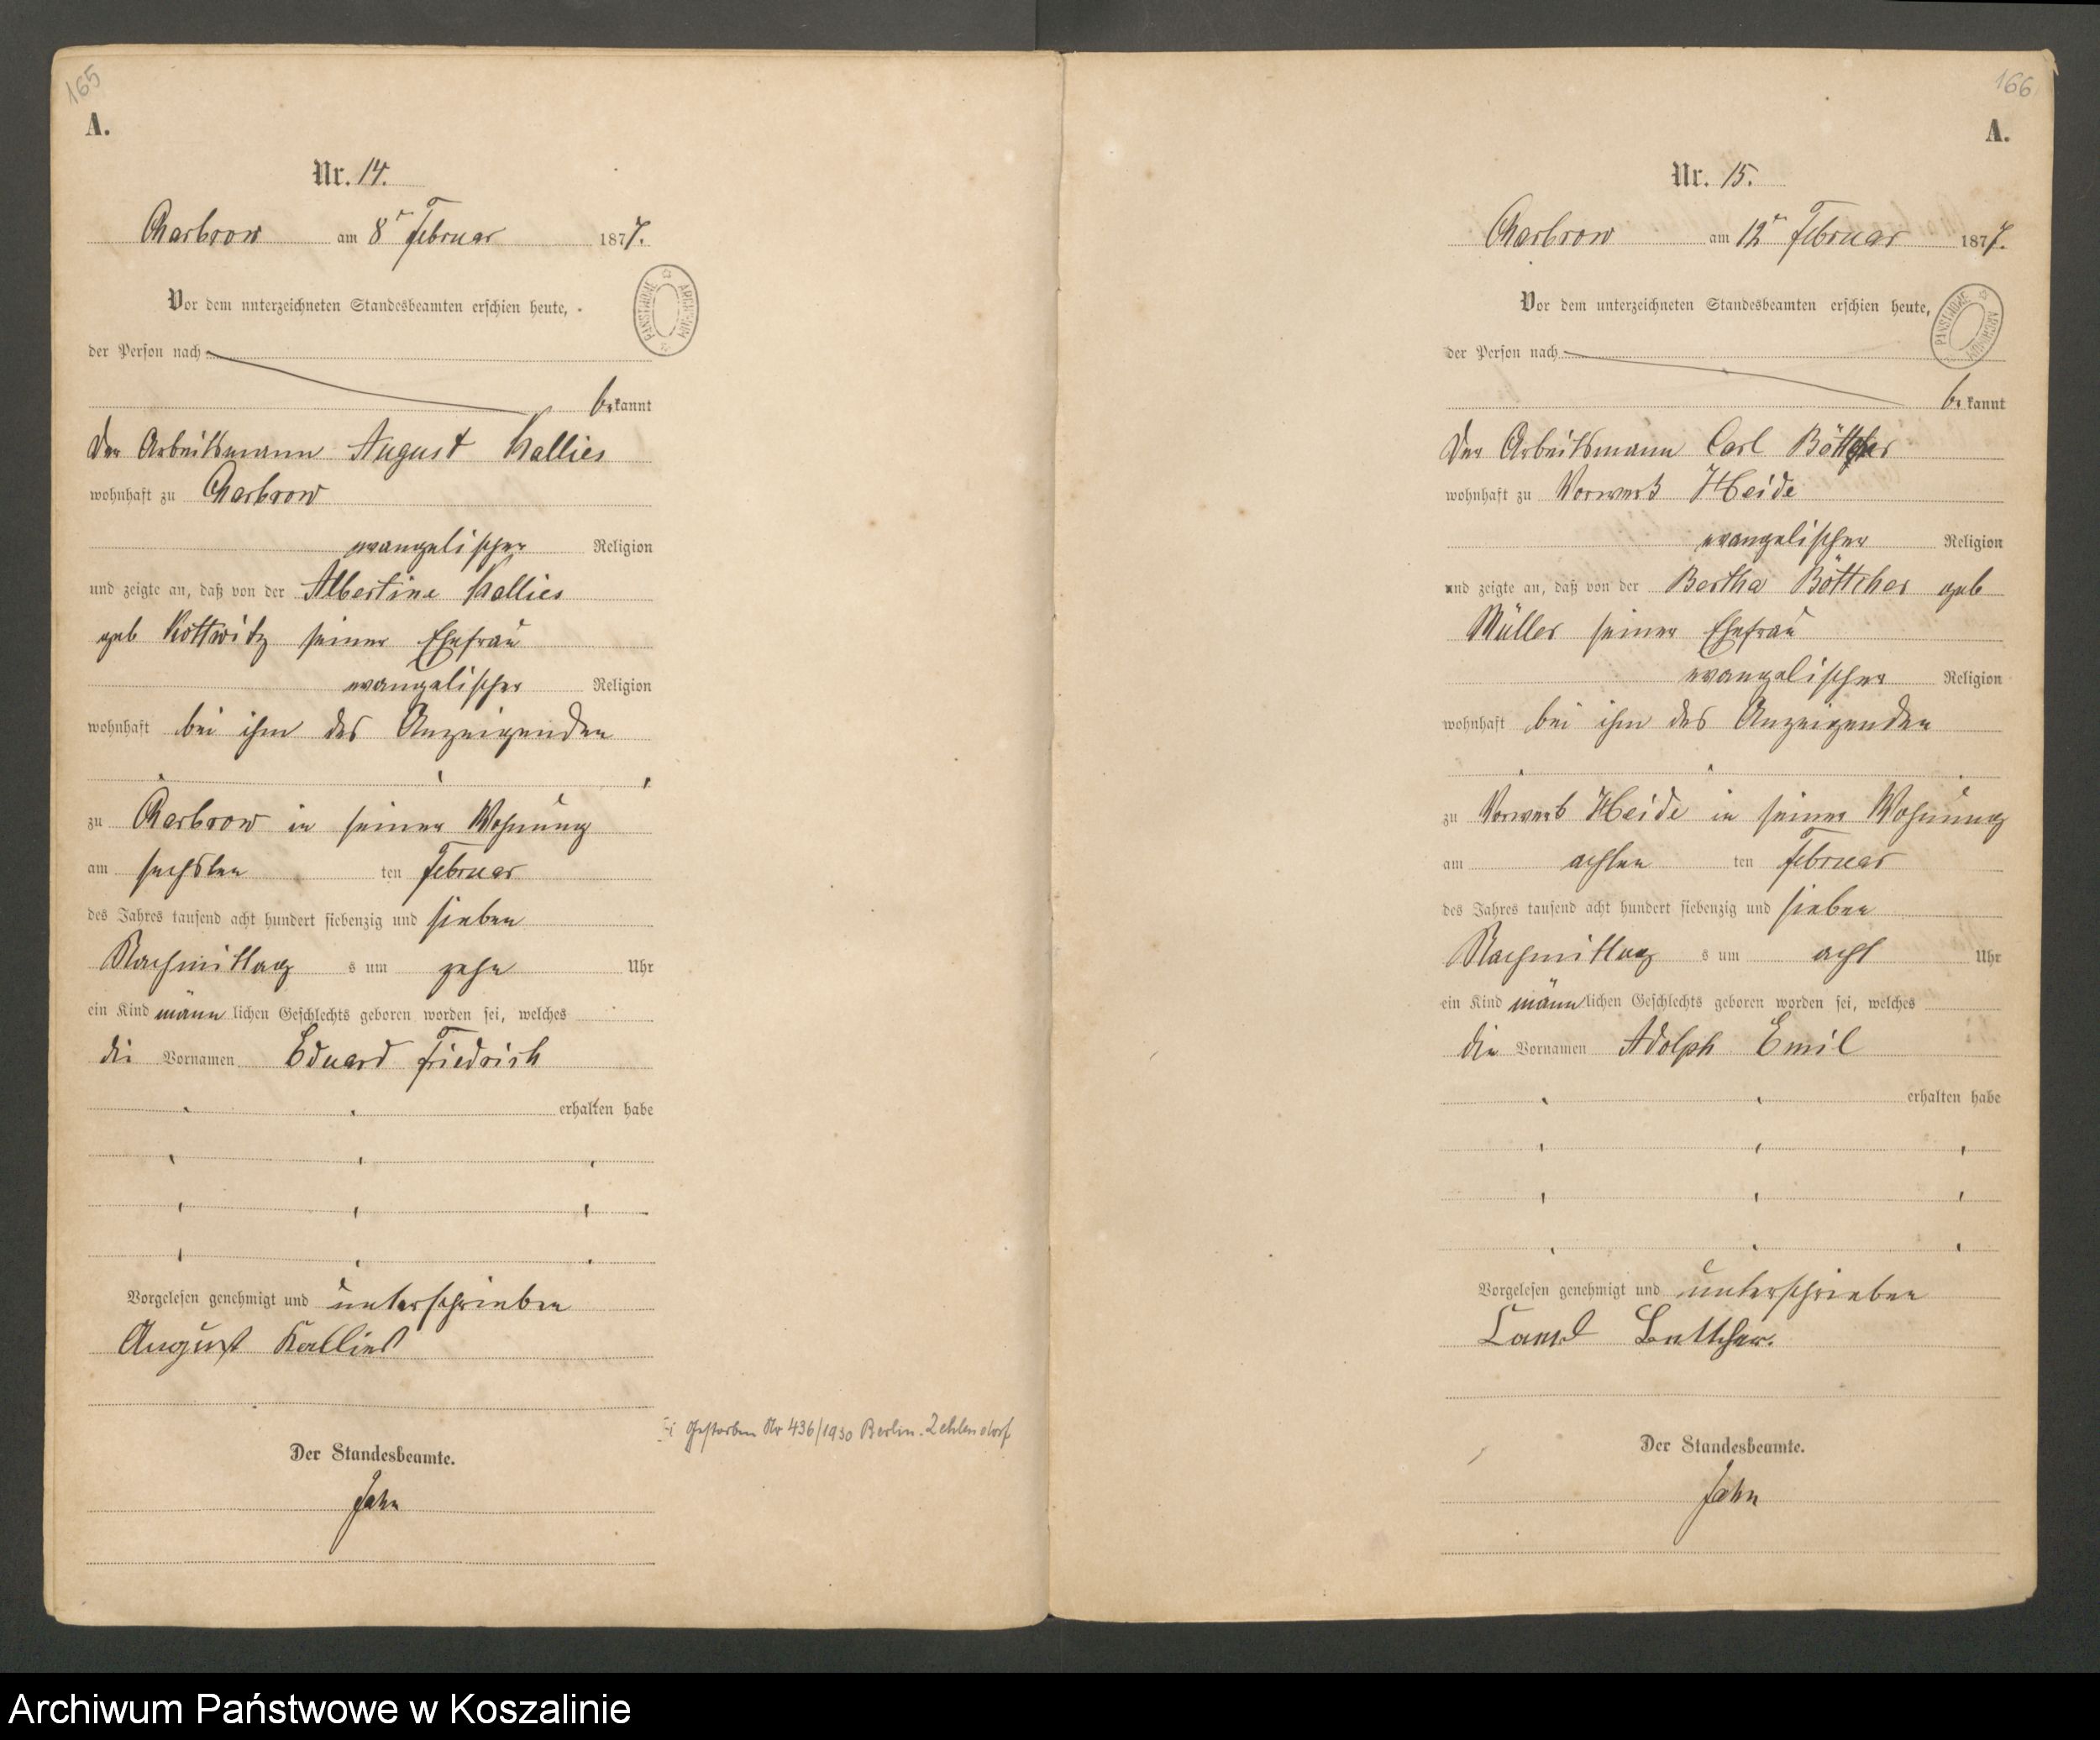 165
A.
Nr. 14.
Charbrow am 8ᵗ Februar 1877.
Vor dem unterzeichneten Standesbeamten erschien heute,
der Person nach
bekannt
Der Arbeitsmann August Kallies
wohnhaft zu Charbrow
evangelischer Religion
und zeigte an, daß von der Albertine Kallies
geb Kottwitz seiner Ehefrau
evangelischer Religion
wohnhaft bei ihm des Anzeigenden
zu Charbrow in seiner Wohnung
am sechsten ten Februar
des Jahres tausend acht hundert siebenzig und sieben
Nachmittag s um zehn Uhr
ein Kind männlichen Geschlechts geboren worden sei, welches
die Vornamen Eduard Friedrich
erhalten habe
Vorgelesen genehmigt und unterschrieben
August Kallies
Gestorben Nr 436/1930 Berlin-Zehlendorf
Der Standesbeamte.
Jahn
PAŃSTWOWE ARCHIWUM
166
A.
Nr. 15.
Charbrow am 12ᵗ Februar 1877.
Vor dem unterzeichneten Standesbeamten erschien heute,
der Person nach
bekannt
Der Arbeitsmann Carl Böttcher
wohnhaft zu Vorwerk Heide
evangelischer Religion
und zeigte an, daß von der Bertha Böttcher geb
Müller seiner Ehefrau
evangelischer Religion
wohnhaft bei ihm des Anzeigenden
zu Vorwerk Heide in seiner Wohnung
am achten ten Februar
des Jahres tausend acht hundert siebenzig und sieben
Nachmittag s um acht Uhr
ein Kind männlichen Geschlechts geboren worden sei, welches
die Vornamen Adolph Emil
erhalten habe
Vorgelesen genehmigt und unterschrieben
Der Standesbeamte.
Jahn
PAŃSTWOWE ARCHIWUM
Archiwum Państwowe w Koszalinie